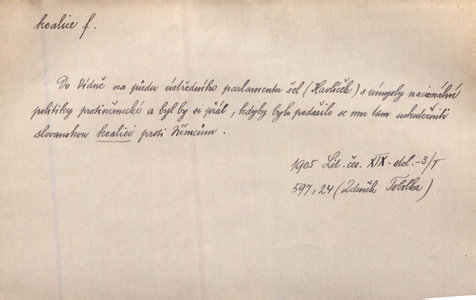 koalice f.
Do Vídně na půdu ústředního parlamentu šel (Havlíček) s úmysly nacionální
politiky protiněmecké a byl by si přál, kdyby bylo podařilo se mu tam uskutečniti
slovanskou koalici proti Němcům.
1905 Lit. čes. XIX. stol. -3/I
597, 24 (Zdeněk Tobolka)